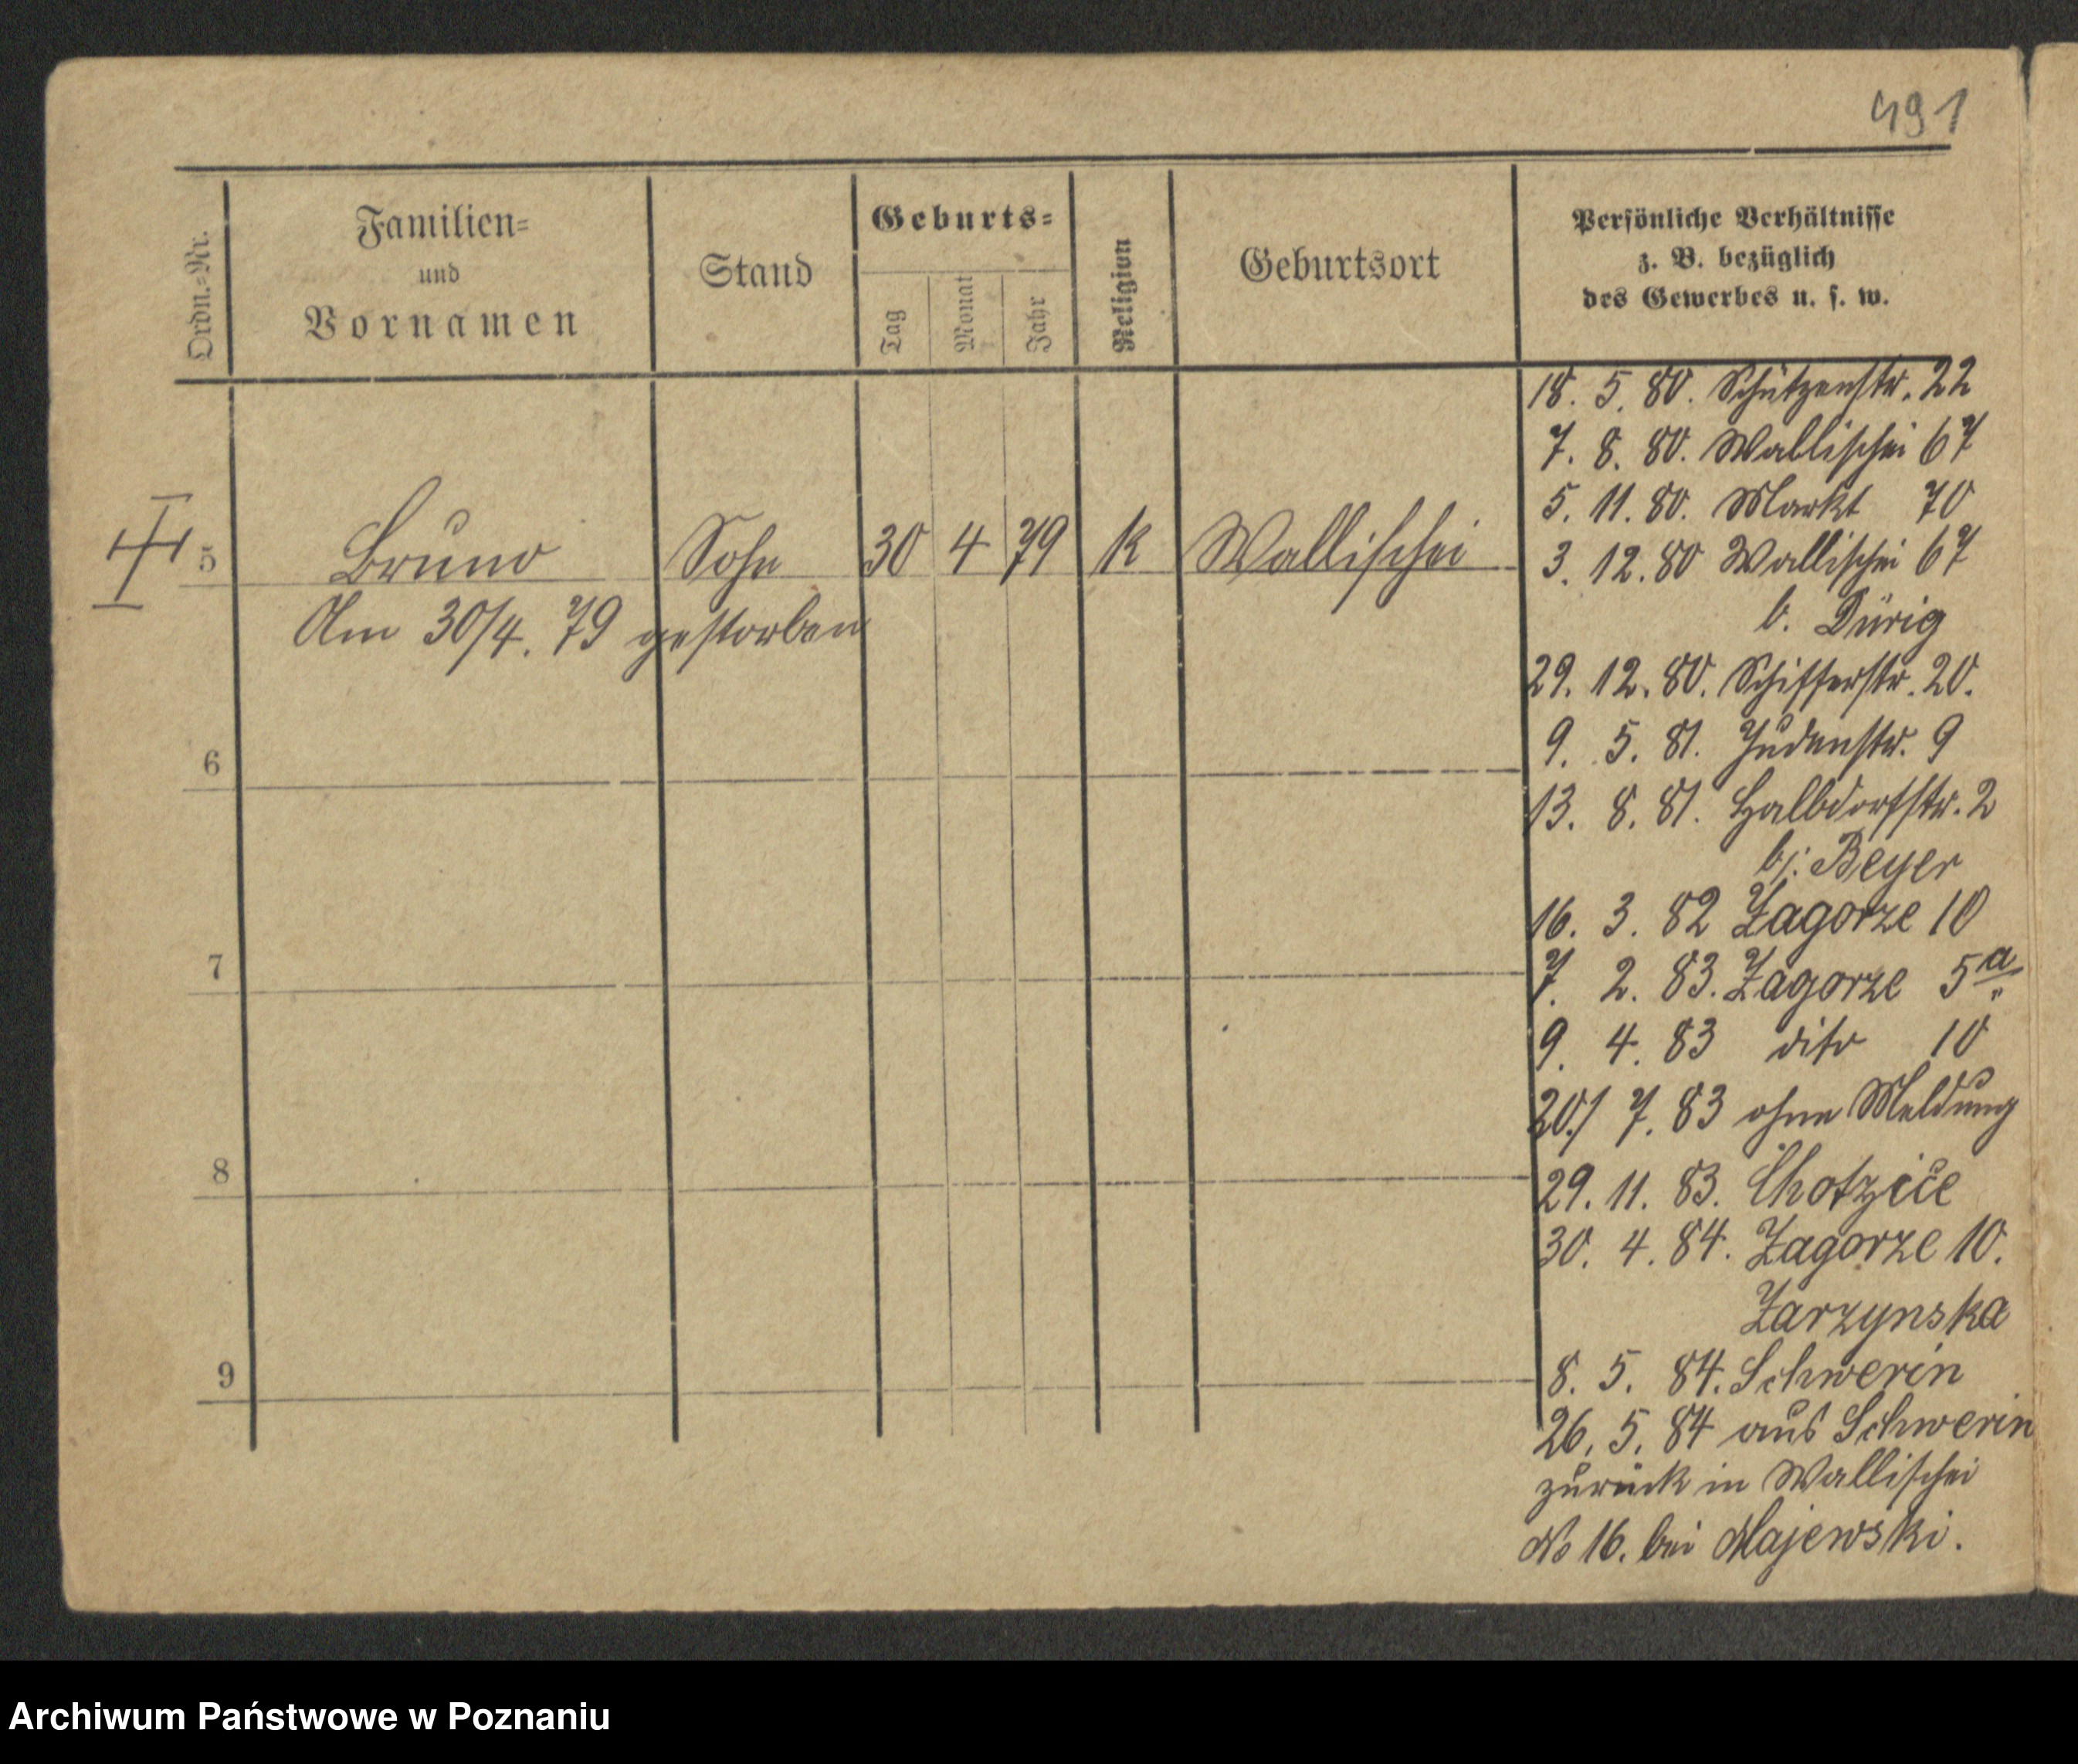 491
Ordn.-Nr.
Familien-
und
Vornamen
Stand
Geburts-
Tag
Monat
Jahr
Religion
Geburtsort
Persönliche Verhältnisse
z. B. bezüglich
des Gewerbes u. s. w.
5 Bruno Sohn 30 4 79 k Wallischei
Am 30/4. 79 gestorben
6
7
8
9
18. 5. 80. Schützenstr. 22
7. 8. 80. Wallischei 67
5. 11. 80. Markt 70
3. 12. 80 Wallischei 67
b. Dürig
29. 12. 80. Schifferstr. 20.
9. 5. 81. Judenstr. 9
13. 8. 81. Halbdorfstr. 2
b: Beyer
16. 3. 82 Zagorze 10
7. 2. 83. Zagorze 5a
9. 4. 83 dito 10
20./ 7. 83 ohne Meldung
29. 11. 83.
30. 4. 84. Zagorze 10.
Zarzynska
8. 5. 84. Schwerin
26. 5. 84 aus Schwerin
zurück in Wallischei
No 16. bei Majewski.
Archiwum Państwowe w Poznaniu